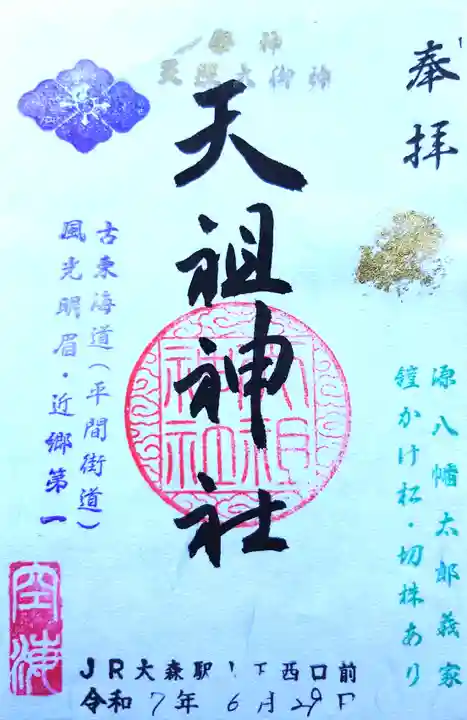 奉拝
祭神
天照大御神
天祖神社
天祖神社
源八幡太郎義家
鎧かけ松・切株あり
古東海道(平間街道)
風光明眉・近郷第一
空海
JR大森駅 西口前
令和7年6月29日